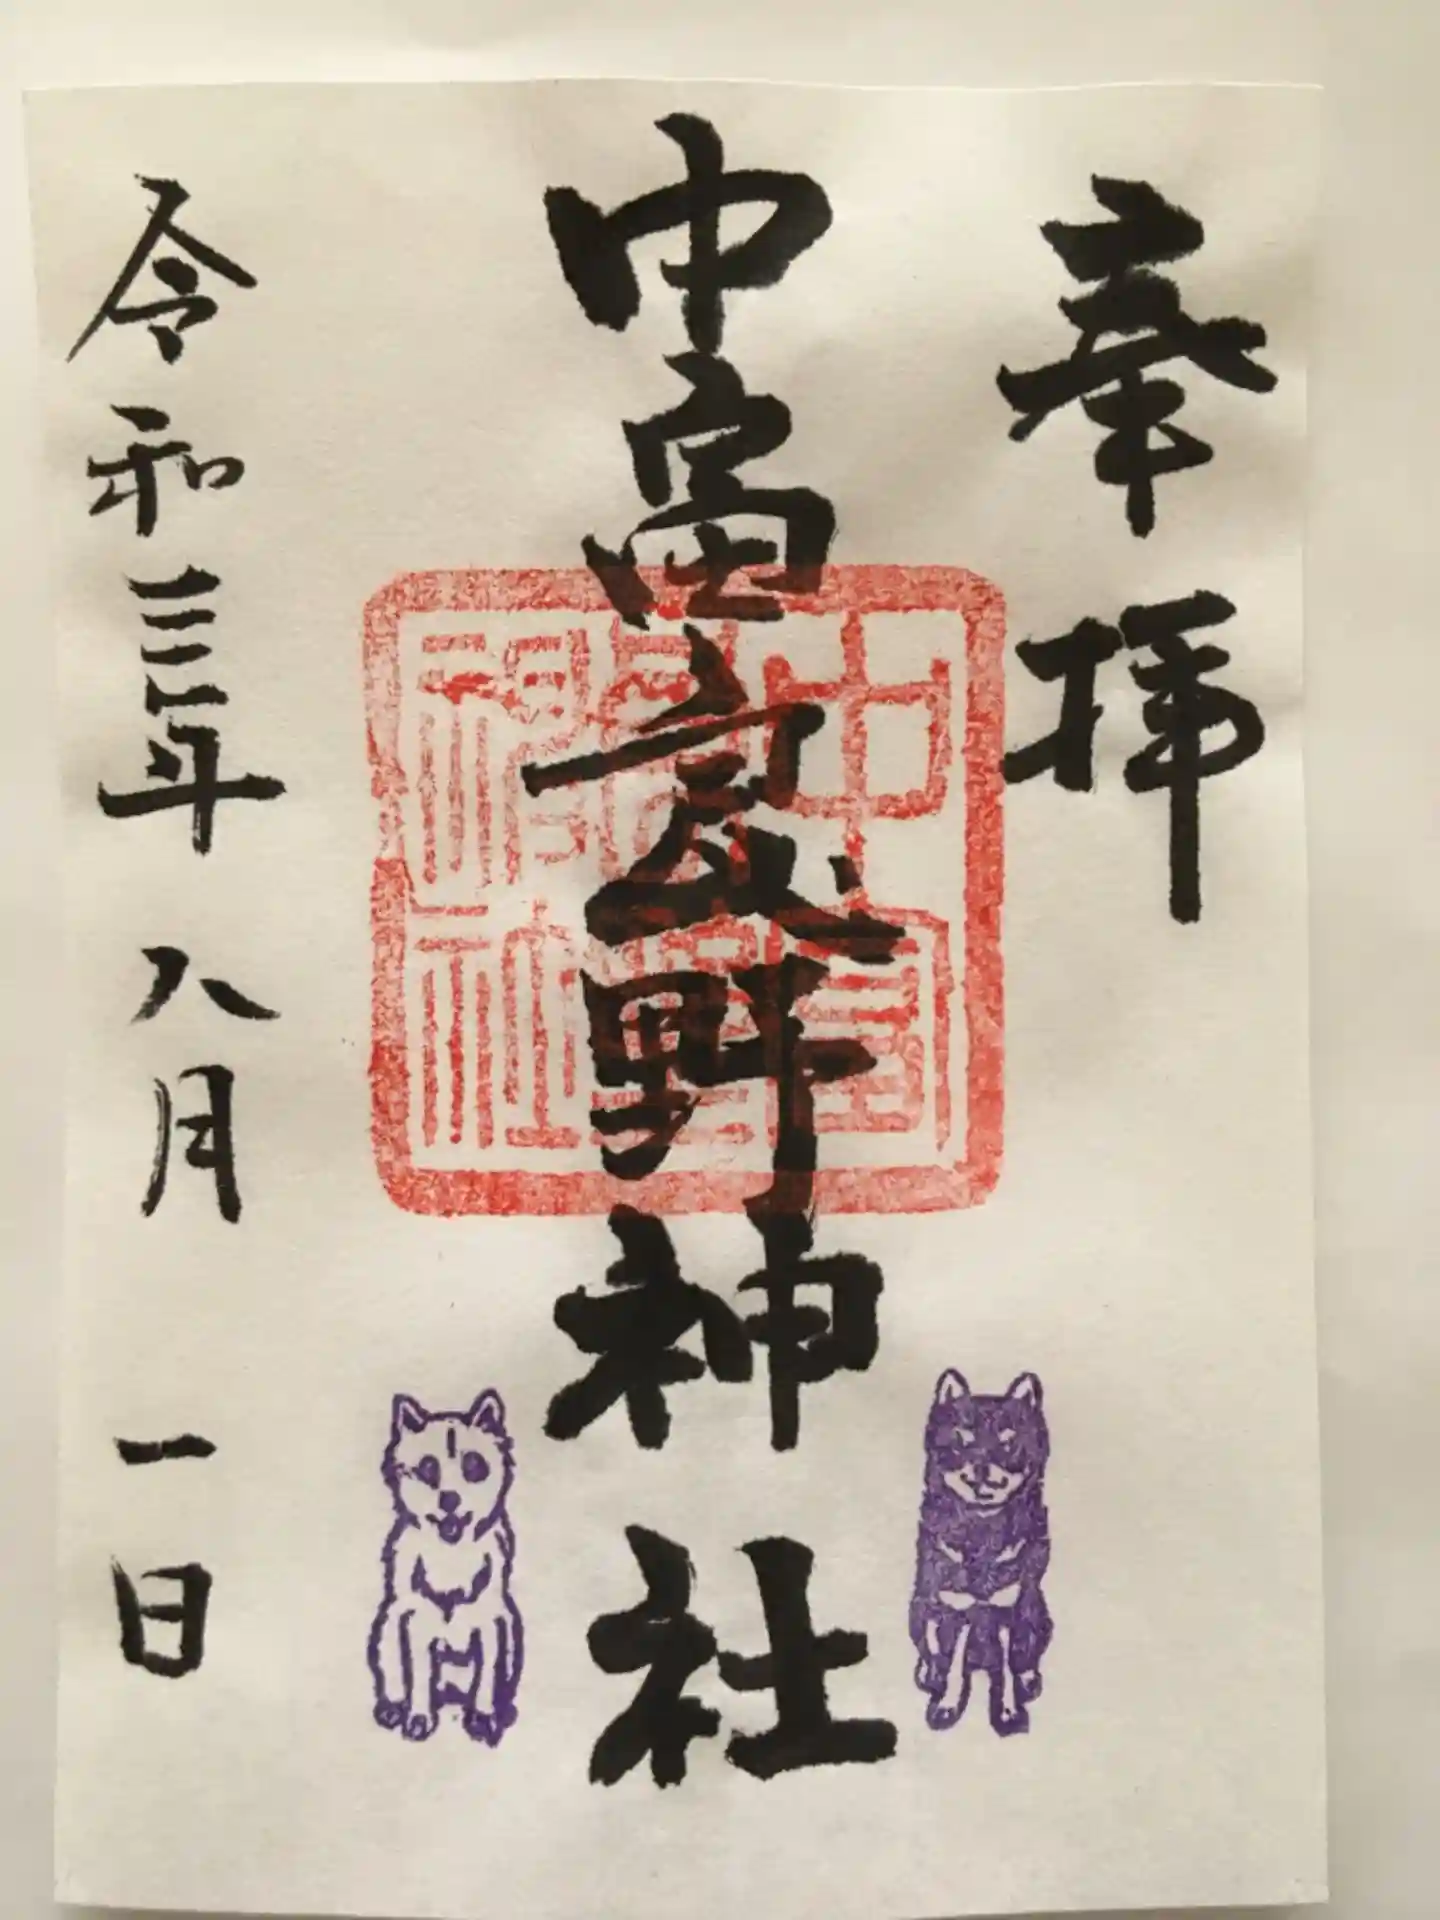 奉拝
中富良野神社
令和三年八月一日
中富
良野
神社